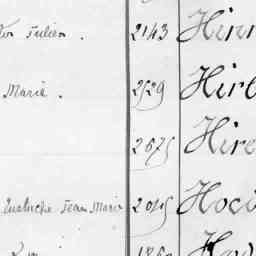 Julien . 2143 Hirr
Marie . 2529 Hirl
2675 Hire
Eustache Jean Marie 2045 Hoci